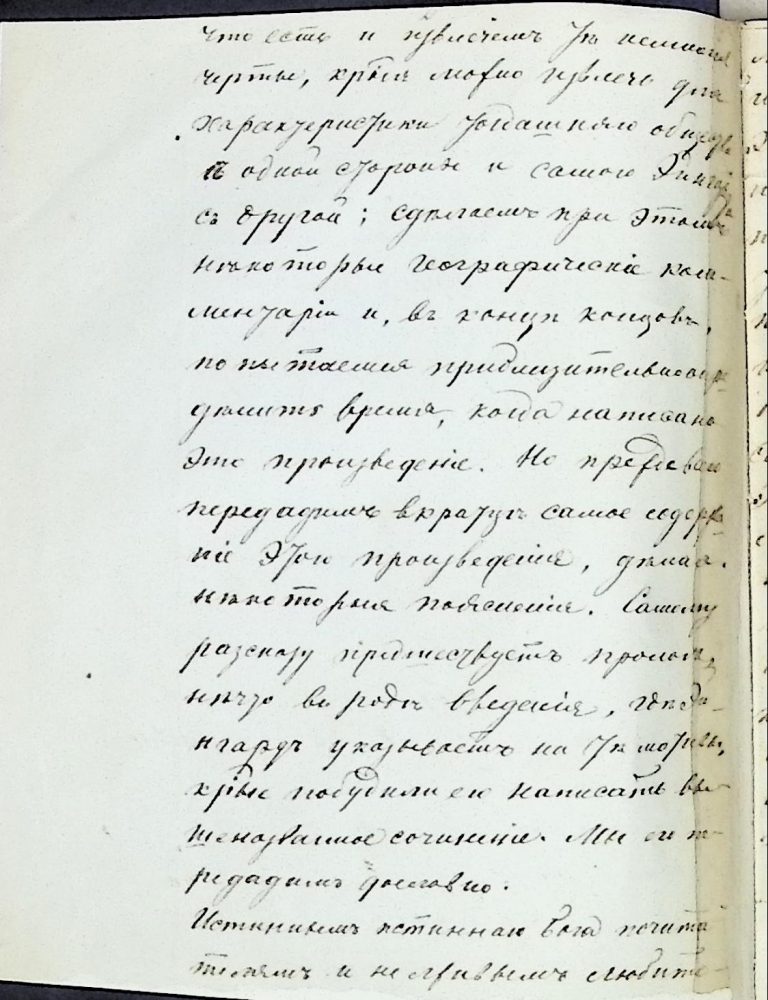 что есть и извлечемъ тѣ немногія
черты, крыя можно извлечь для
характеристики тогдашняго общества
съ одной стороны и самого Эйнгарда
съ другой; сдѣлаемъ при этомъ
нѣкоторые географическіе ком-
ментаріи и, въ концѣ концовъ,
попытаемся приблизительно опре-
дѣлить время, когда написано
это произведеніе. Но прежде всего
передадимъ вкратцѣ самое содержа-
ніе этого произведенія, дѣлая
нѣкоторыя поясненія. Самому
разсказу предшествуетъ прологъ,
нѣчто въ родѣ введенія, гдѣ Эй-
нгардъ указываетъ на тѣ мотивы,
крые побудили его написать вы-
шеназванное сочиненіе. Мы его пе-
редадимъ дословно.
Истиннымъ истиннаго Бога почита-
телямъ и нелживымъ любите-